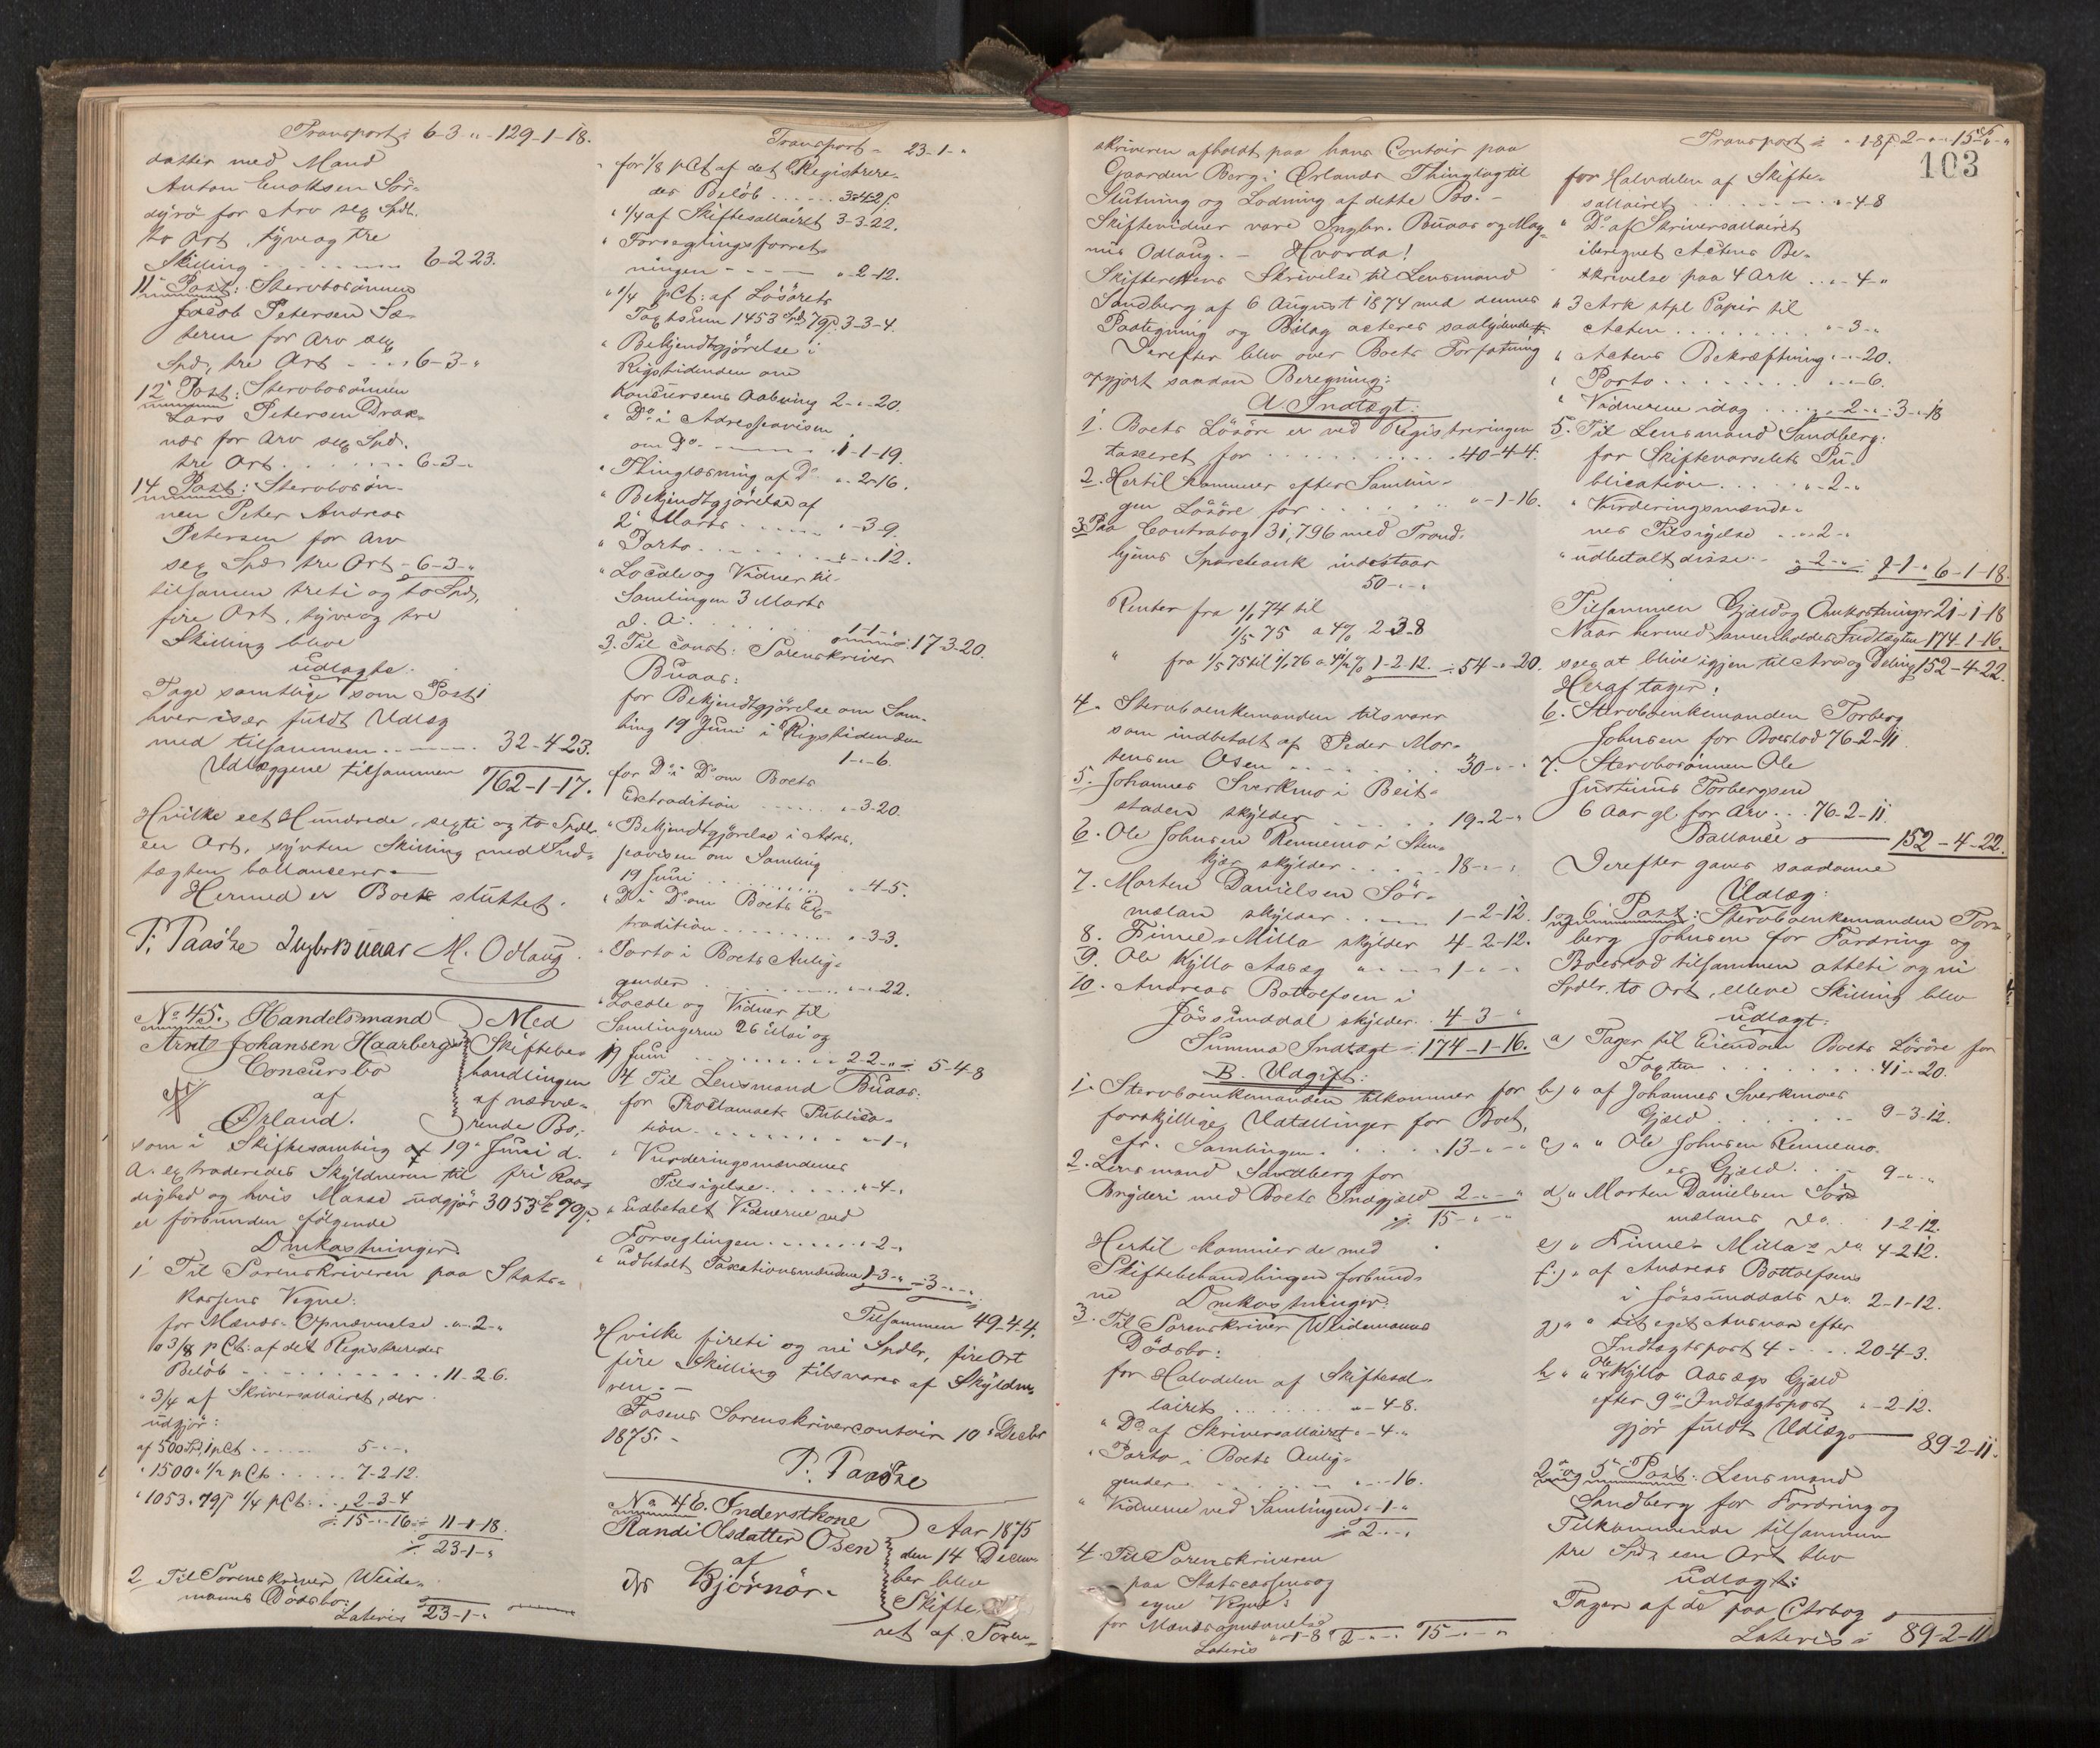 Transport 6-3-"-129-1-18.
datter med Mand
Anton Enoksen Sör-
dyrö for Arv sex Spdl.
to Ort, tyve og tre
Skilling 6-2-23.
11 Post: Stervbosönnen
Jacob Petersen Sæ-
teren for Arv sex
Spd, tre Ort 6-3-"
12 Post: Stervbosönnen
Lars Petersen Brak-
næs for Arv sex Spd.
tre Ort 6-3-"
14 Post: Stervbosön-
nen Peter Andreas
Petersen for Arv
sex Spd tre Ort 6-3-"
tilsamen treti og to Spd,
fire Ort, tyve og tre
Skilling bleve
udlagte:
Tage samtlige som Post i
hver især fuldt Udlæg
med tilsammen 32-4-23.
Udlæggene tilsammen 162-1-17.
Hvilke eet Hundrede, sexti og to Spdl.
een Ort, sytten Skilling med Ind-
tægten ballancerer.
Hermed er Boet sluttet.
P. Paaske Ingbr Buaas M. Odlaug.
No 45. Handelsmand
Arnt Johansen Haarbergs
Concursbo
af
Ørland.
Med
Skiftebe-
handlingen
af nærvæ-
rende Bo,
som i Skiftesamling af 19 Juni d.
A. extraderedes Skyldneren til fri Raa-
dighed og hvis Masse udgjör 3053 Spd 79 s.
er forbunden følgende
Omkostninger
1 Til Sorenskriveren paa Stats-
kassens Vegne:
for Mænds Opnævnelse "-2-"
" 3/8 pCt: af det Registrerede
Belöb 11-2-6.
" 3/4 af Skriversallairet, der
udgjör:
af 500 Spd, 1 pCt 5-"-"
" 1500 " 1/2 pCt 7-2-12.
" 1053 " 79 s 1/4 pCt: 2-3-4
15-"-16 11-1-18.
23-1-"
2 Til Sorenskriver Weide-
manns Dödsbo:
Lateris 23-1-"
Transport 23-1-"
for 1/8 pCt af det Registrere-
des Belöb 3-4-2
" 1/4 af Skiftesallairet 3-3-22.
" Forseglingsforret-
ningen "-2-12.
" 1/4 pCt: af Lösörets
Taxtsum 1453 Spd 79 s. 3-3-4.
" Bekjendtgjörelse i
Rigstidenden om
Concursens Aabning 2-"-20.
" Do i Adresseavisen
om Do 1-1-19.
" Thinglæsning af Do "-2-16.
" Bekjendtgjörelse af
2 Marts "-3-9.
" Porto "-"-12.
" Locale og Vidner til
Samlingen 3 Marts
d. A. 1-1-" 17-3-20.
3. Til const: Sorenskriver
Buaas:
for Bekjendtgjörelse om Sam-
ling 19 Juni i Rigstidenden
1-"-6.
for Do i Do om Boets
Extradition "-3-20.
" Bekjendtgjörelse i Adres-
seavisen om Samling
19 Juni "-4-5.
" Do i Do om Boets Ex-
tradition "-3-3.
" Porto i Boets Anlig-
gender "-"-22.
" Locale og Vidner til
Samlingerne 26 Mai og
19 Juni 2-2-" 5-4-8
4 Til Lensmand Buaas:
for Proclamaets Publica-
tion "-1-"
" Vurderingsmændenes
Tilsigelse "-4-"
" Udbetalt Vidnerne ved
Forseglingen "-2-"
" udbetalt Taxationsmændene 1-3-" 3-"-"
Tilsammen 49-4-4.
Hvilke fireti og ni Spdlr, fire Ort
fire Skilling tilsvares af Skyldne-
ren.
Fosens Sorenskrivercontoir 10 Decbr
1875.
P. Paaske
No 46. Inderstkone
Randi Olsdatter Osen
af
Bjørnör.
Aar 1875
den 14 Decem-
ber blev
Skifte
ret af Soren-
103
skriveren afholdt paa hans Contoir paa
Gaarden Berg i Ørlands Thinglag til
Slutning og Lodning af dette Bo. -
Skiftevidner vare Ingbr. Buaas og Mag-
nus Odlaug. - Hvorda!
Skifterettens Skrivelse til Lensmand
Sandberg af 6 August 1874 med dennes
Paategning og Bilag acteres saalydende
Derefter blev over Boets Forfatning
opgjort saadan Beregning:
A Indtægt:
1. Boets Lösöre er ved Registreringen
taxeret for 40-4-4.
2. Hertil kommer efter Samlin-
gen Lösöre for "-1-16.
3. Paa Contrabog 31,796 med Trond-
hjems Sparebank indestaar
50-"-"
Renter fra 1/1 74 til
1/5 75 a 4% 2-3-8
" fra 1/5 75 til 1/1 76 a 4 1/2 % 1-2-12. 54-"-20.
4. Stervboenkemanden tilsvarer
som indbetalt af Peder Mor-
tensen Osen 30-"-"
5. Johannes Sverkmo i Beit-
staden skylder 19-2-"
6. Ole Johnsen Rennemo i Sten-
kjær skylder 18-"-"
7. Morten Danielsen Sör-
mælan skylder 1-2-12.
8. Finne-Milla skylder 4-2-12.
9. Ole Kyllo Aasæg " 1-"-"
10. Andreas Bottolfsen i
Jössunddal skylder 4-3-"
Summa Indtægt 174-1-16.
B. Udgift:
1. Stervboenkemanden tilkommer for
forskjellige Udtællinger for Boet,
cfr. Samlingen 13-"-"
2. Lensmand Sandberg for
Bryderi med Boets Indgjæld 2-"-"
15-"-"
Hertil kommer de med
Skiftebehandlingen forbund-
ne Omkostninger:
3. Til Sorenskriver Weidemanns
Dödsbo:
for Halvdelen af Skiftesal-
lairet "-4-8.
" Do af Skriversallairet "-4-"
" Porto i Boets Anlig-
gender "-"-16.
" Vidnerne ved Samlingen "-1-"
2-"-"
4 Til Sorenskriveren
paa Statscassens og
egne Vegne:
for Mændsopnævnelse
Lateris "-1-8 2-"-" 15-"-"
Transport "-18 s 2-"-" 15-"-"
for Halvdelen af Skifte-
sallairet "-4-8
" Do af Skriversallairet
iberegnet Actens Be-
skrivelse paa 4 Ark "-4-"
" 3 Ark stpl Papir til
Acten "-3-"
" Actens Bekræftning "-"-20.
" Porto "-"-6.
" Vidnerne idag "-2-" 3-"-18
5. Til Lensmand Sandberg:
for Skiftevarselets Pu-
blication "-2-"
" Vurderingsmænde-
nes Tilsigelse "-2-"
" udbetalt disse "-2-" 1-1-" 6-1-18.
Tilsammen Gjæld og Omkostninger 21-1-18
Naar hermed samenholdes Indtægten 174-1-16.
sees at blive igjen til Arv og Deling 152-4-22.
Heraf tager:
6. Stervboenkemanden Torberg
Johnsen for Boeslod 76-2-11.
7. Stervbosönnen Ole
Justinus Torbergsen
6 Aar gl. for Arv 76-2-11.
Ballance 152-4-22.
Derefter gaves saadanne
Udlæg:
1 og 6 Post: Stervboenkemanden Tor-
berg Johnsen for Fordring og
Boeslod tilsammen otteti og ni
Spdlr. to Ort, elleve Skilling blev
udlagt:
a) Tager til Eiendom Boets Lösöre for
Taxten 41-"-20.
b) " af Johannes Sverkmoes
Gjæld 9-3-12.
c) " " Ole Johnsen Rennemo-
es Gjæld 9-"-"
d) " Morten Danielsen Sör-
mælans do. 1-2-12.
e) " Finne-Milla's do 4-2-12.
f.) " af Andreas Bottolfsens
i Jössunddals do. 2-1-12.
g) " " sit eget Ansvar efter
Indtægtspost 4 20-4-3.
h " " Ole Kyllo Aasægs Gjæld
efter 9de Indtægtspost "-2-12.
gjör fuldt Udlæg 89-2-11.
2 og 5 Post: Lensmand
Sandberg for Fordring og
Tilkommende tilsammen
tre Spd, een Ort blev
udlagt:
Tager af de paa Ctrbog
Lateris 89-2-11